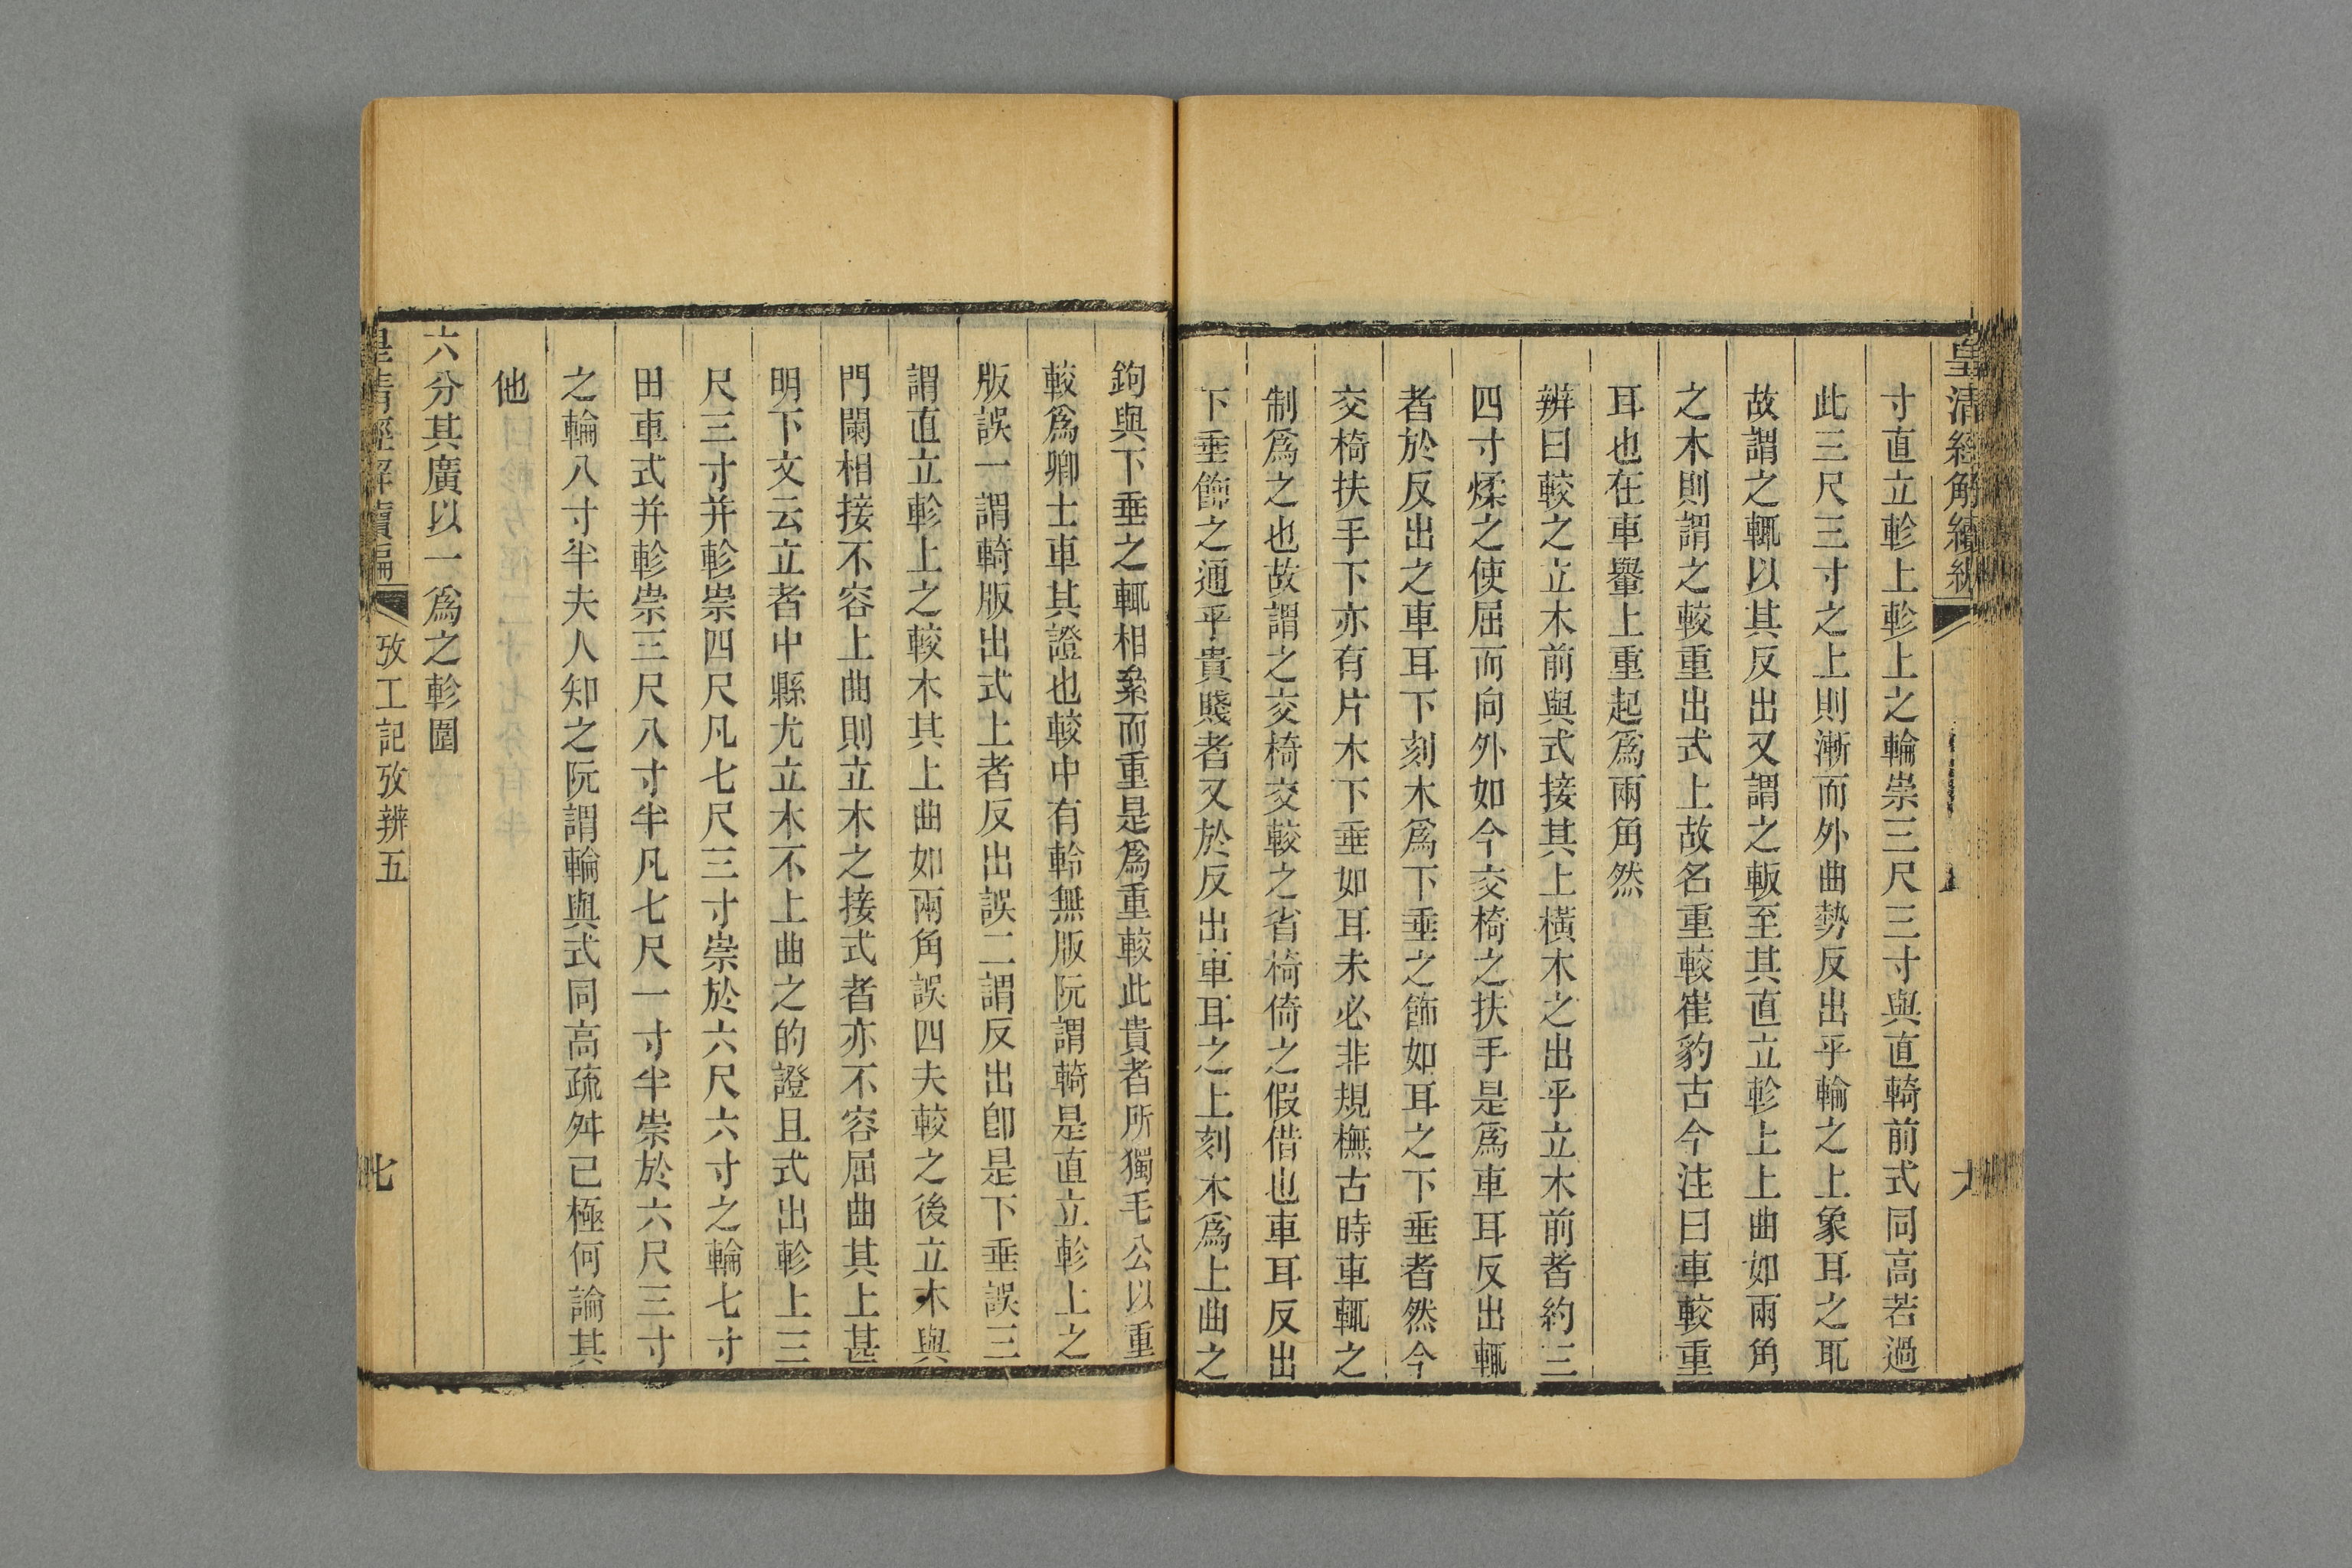 皇清經解續編
寸直立軫上軫上之輪崇三尺三寸與直輢前式同高若過
此三尺三寸之上則漸而外曲勢反出乎輪之上象耳之耴
故謂之輒以其反出又謂之軓至其直立軫上上曲如兩角
之木則謂之較重出式上故名重較崔豹古今注曰車較重
耳也在車轝上重起爲兩角然
辨曰較之立木前與式接其上橫木之出乎立木前者約三
四寸煣之使屈而向外如今交椅之扶手是爲車耳反出輒
者於反出之車耳下刻木爲下垂之飾如耳之下垂者然今
交椅扶手下亦有片木下垂如耳未必非規橅古時車輒之
制爲之也故謂之交椅交較之省椅倚之假借也車耳反出
下垂飾之通乎貴賤者又於反出車耳之上刻木爲上曲之
鉤與下垂之輒相絫而重是爲重較此貴者所獨毛公以重
較爲卿士車其證也較中有軨無版阮謂輢是直立軫上之
版誤一謂輢版出式上者反出誤二謂反出卽是下垂誤三
謂直立軫上之較木其上曲如兩角誤四夫較之後立木與
門闌相接不容上曲則立木之接式者亦不容屈曲其上甚
明下文云立者中縣尤立木不上曲之的證且式出軫上三
尺三寸并軫崇四尺凡七尺三寸崇於六尺六寸之輪七寸
田車式并軫崇三尺八寸半凡七尺一寸半崇於六尺三寸
之輪八寸半夫人知之阮謂輪與式同高疏舛已極何論其
他
六分其廣以一爲之軫圍
皇清經解續編
攷工記攷辨五